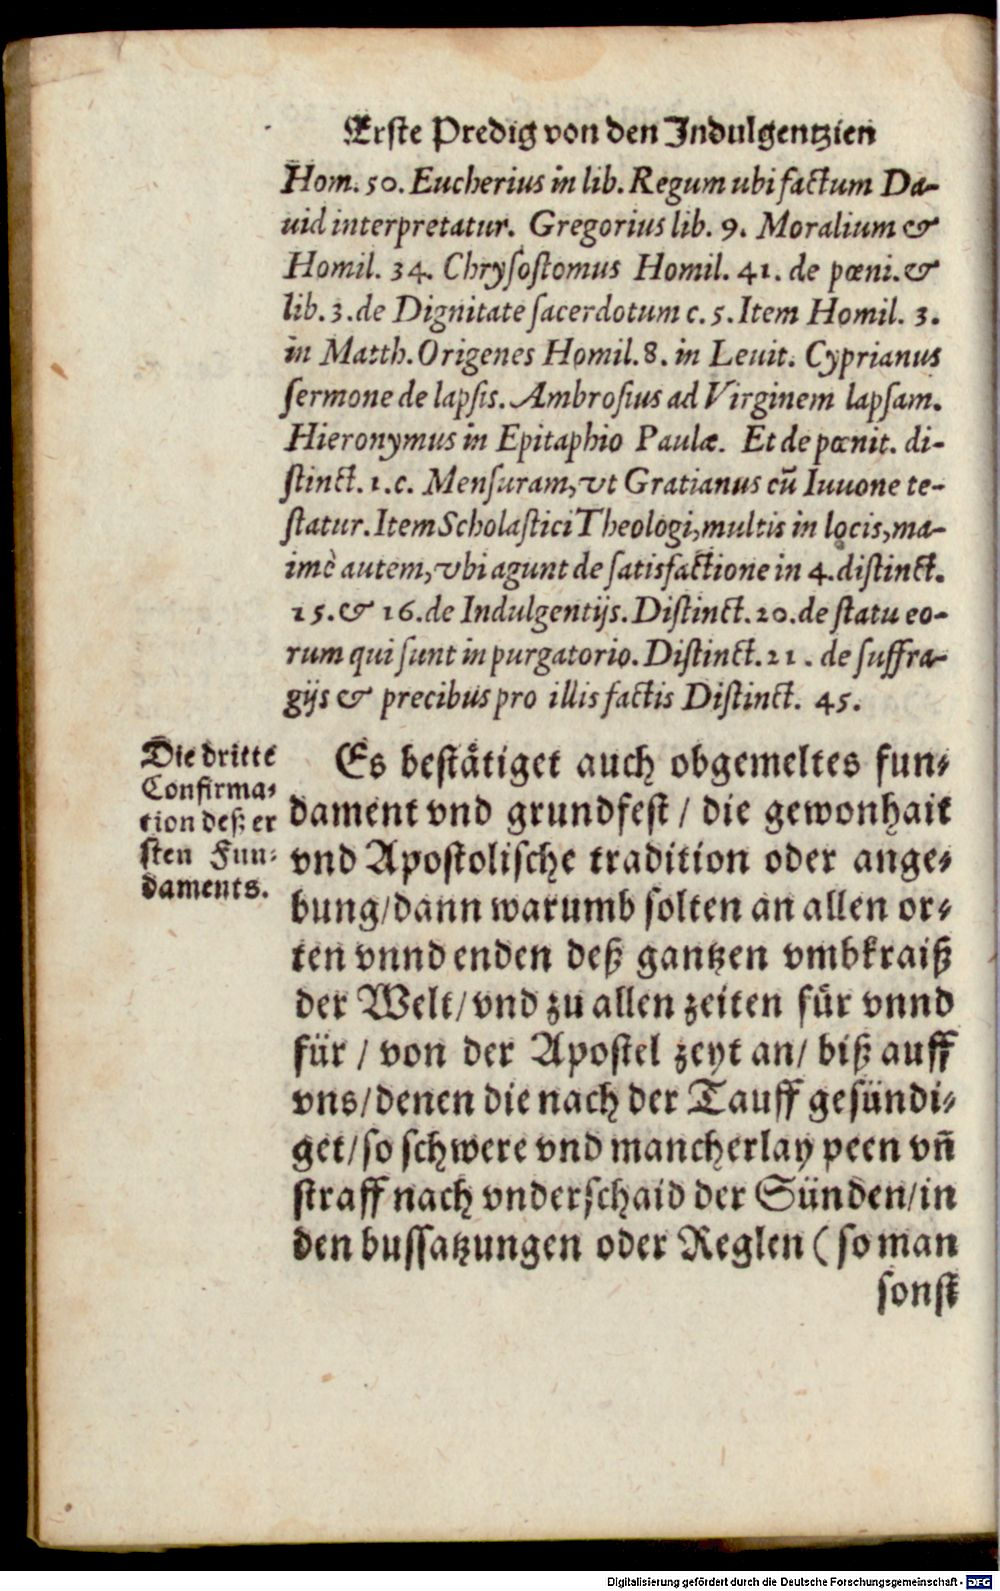 Erste Predig von den Indulgentzien
Hom. 50. Eucherius in lib. Regum ubi factum Da-
uid interpretatur. Gregorius lib. 9. Moralium &
Homil. 34. Chrysostomus Homil. 41. de pœni. &
lib. 3. de Dignitate sacerdotum c. 5. Item Homil. 3.
in Matth. Origenes Homil. 8. in Leuit. Cyprianus
sermone de lapsis. Ambrosius ad Virginem lapsam.
Hieronymus in Epitaphio Paulæ. Et de pœnit. di-
stinct. 1. c. Mensuram, vt Gratianus cū Iuuone te-
statur. Item Scholastici Theologi, multis in locis, ma-
imè autem, vbi agunt de satisfactione in 4. distinct.
15. & 16. de Indulgentijs. Distinct. 20. de statu eo-
rum qui sunt in purgatorio. Distinct. 21. de suffra-
gijs & precibus pro illis factis Distinct. 45.
Die dritte
Confirma-
tion deß er
sten Fun-
daments.
Es bestätiget auch obgemeltes fun-
dament vnd grundfest / die gewonhait
vnd Apostolische tradition oder ange-
bung/dann warumb solten an allen or-
ten vnnd enden deß gantzen vmbkraiß
der Welt/vnd zu allen zeiten für vnnd
für / von der Apostel zeyt an/ biß auff
vns/denen die nach der Tauff gesündi-
get/so schwere vnd mancherlay peen vn̄
straff nach vnderschaid der Sünden/in
den bussatzungen oder Reglen ( so man
sonst
Digitalisierung gefördert durch die Deutsche Forschungsgemeinschaft - DFG